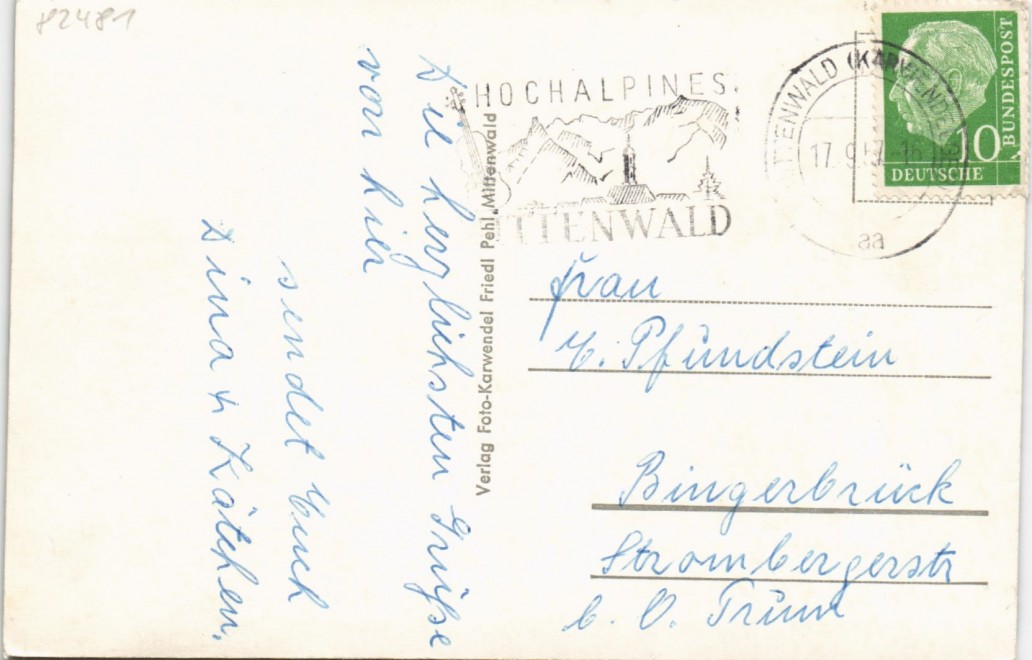 82481
Die herzlichsten Grüße
von hier
sendet Euch
Dina u Kätchen.
Verlag Foto-Karwendel Friedl Pehl Mittenwald
HOCHALPINES
MITTENWALD
MITTENWALD (KARWENDEL)
17.9.57.-16
aa
10
BUNDESPOST
DEUTSCHE
Frau
Pfundstein
Bingerbrück
Strombergerstr
b. O.